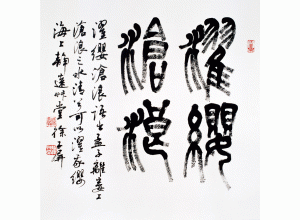 濯纓
滄浪
濯纓滄浪語出孟子離婁上
滄浪之水清兮可以濯我纓
海上靜遠草堂徐子屏